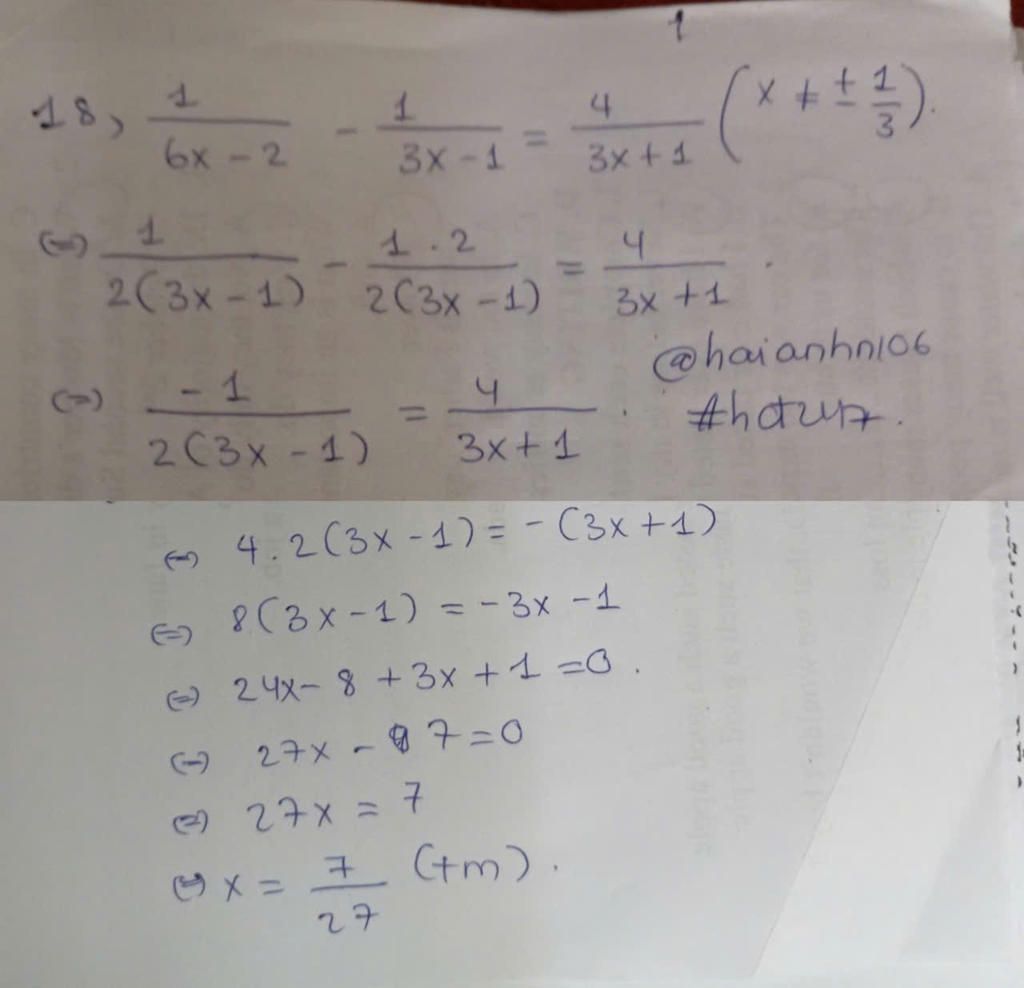 1
18, 1/(6x - 2) - 1/(3x - 1) = 4/(3x + 1) (x ≠ ± 1/3).
(=) 1/(2(3x - 1)) - (1 . 2)/(2(3x - 1)) = 4/(3x + 1) .
@haianhn106
(=) -1/(2(3x - 1)) = 4/(3x + 1) .
(=) 4 . 2(3x - 1) = - (3x + 1)
(=) 8(3x - 1) = -3x - 1
(=) 24x - 8 + 3x + 1 = 0 .
(=) 27x - 7 = 0
(=) 27x = 7
(=) x = 7/27 (tm) .